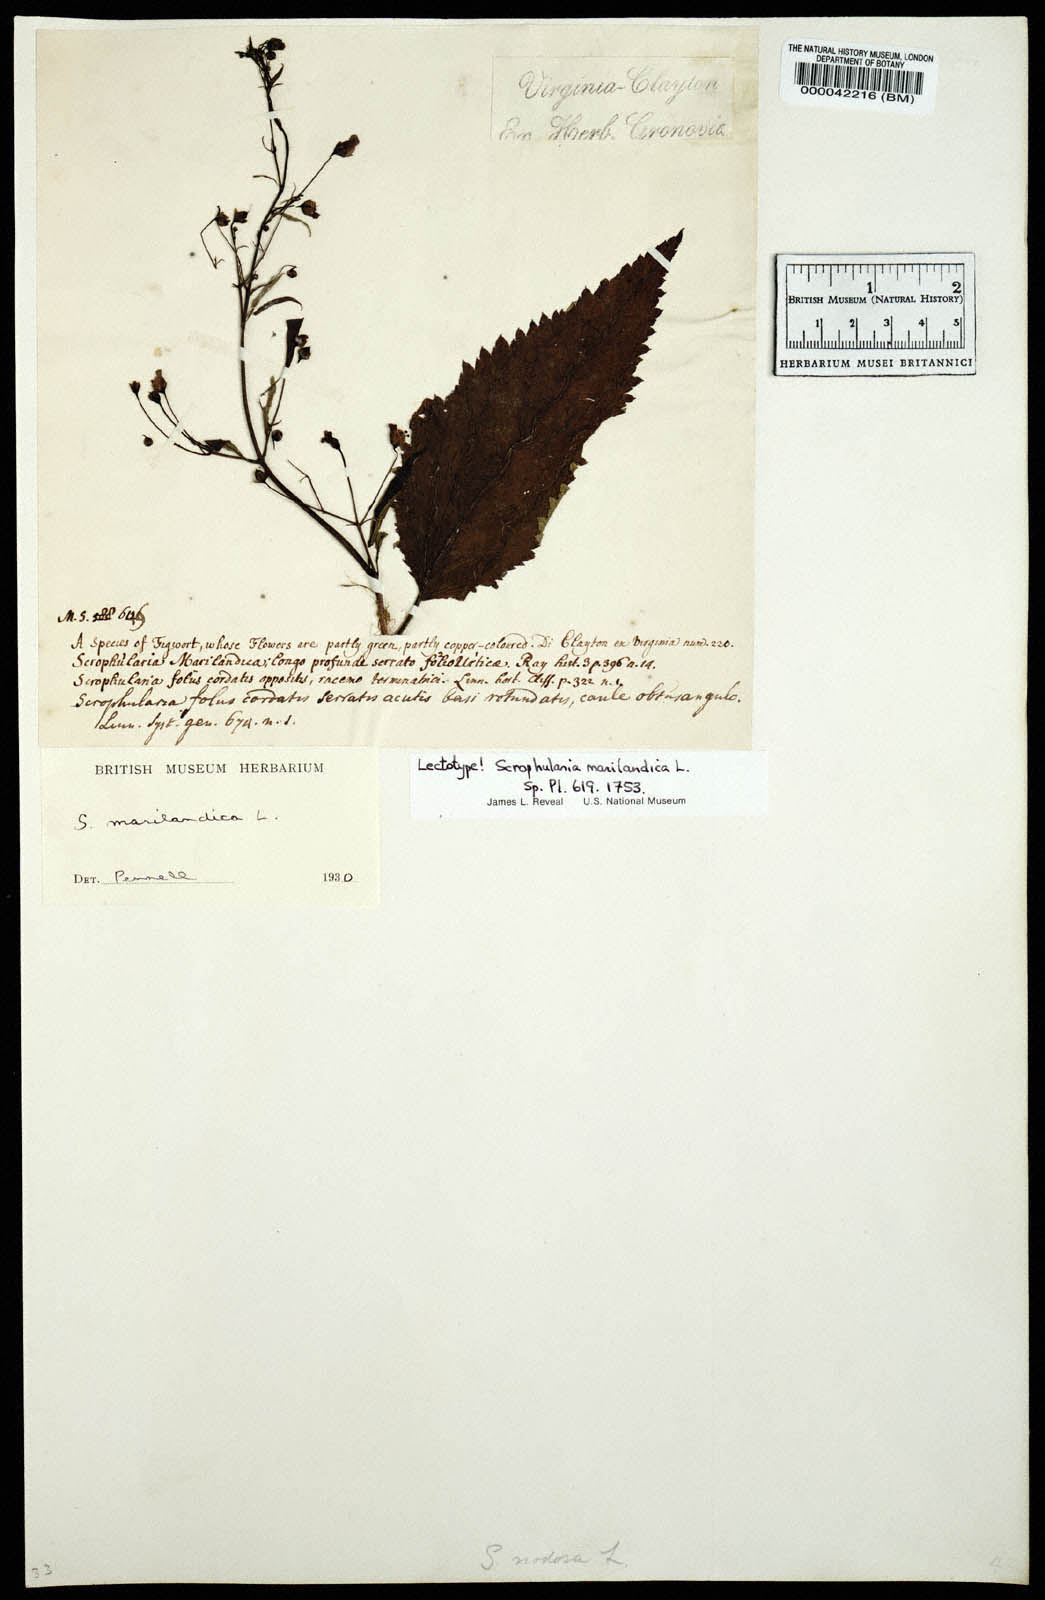 Virginia-Clayton
Ex Herb. Gronovia
THE NATURAL HISTORY MUSEUM, LONDON
DEPARTMENT OF BOTANY
000042216 (BM)
1 2
BRITISH MUSEUM (NATURAL HISTORY)
1 2 3 4 5
HERBARIUM MUSEI BRITANNICI
M. S. 646
A Species of Figwort, whose Flowers are partly green, partly copper-coloured. D: Clayton ex Virginia num. 220.
Scrophularia Marilandica, longo profunde serrato folio Urticæ. Ray hist. 3 p. 396 n. 14.
Scrophularia foliis cordatis oppositis, racemo terminatrici. Linn. hort. Cliff. p. 322 n. 1.
Scrophularia foliis cordatis serratis acutis basi rotundatis, caule obtusangulo.
Linn. Syst. gen. 674. n. 1.
BRITISH MUSEUM HERBARIUM
S. marilandica L.
DET. Pennell 1930
Lectotype! Scrophularia marilandica L.
Sp. Pl. 619. 1753.
James L. Reveal U.S. National Museum
S. nodosa L.
33